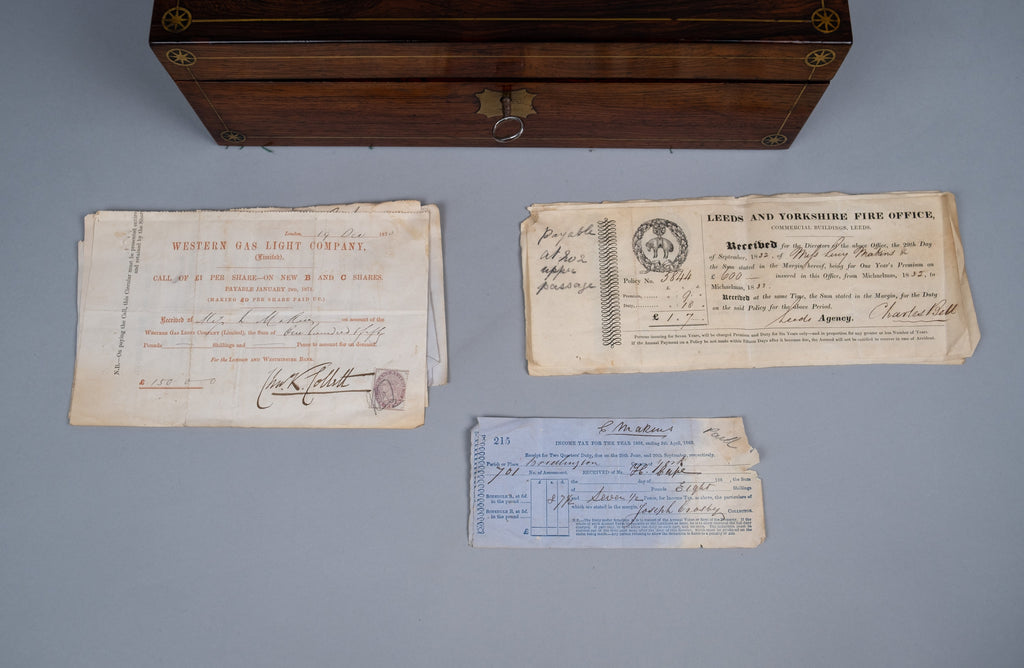 London, 19 Dec 187
WESTERN GAS LIGHT COMPANY,
(Limited),
CALL OF £1 PER SHARE—ON NEW B AND C SHARES.
PAYABLE JANUARY 2ND, 1871.
(MAKING £9 PER SHARE PAID UP.)
Received of Miss L Makins on account of the
WESTERN GAS LIGHT COMPANY (Limited), the Sum of One hundred & fifty
Pounds — Shillings and — Pence to account for on demand.
For the LONDON AND WESTMINSTER BANK.
£ 150 0 0
Chas. K. Collett
N.B.—On paying the Call, this Circular must be presented
and retained by the
Payable
at
upper
passage
LEEDS AND YORKSHIRE FIRE OFFICE,
COMMERCIAL BUILDINGS, LEEDS.
Received for the Directors of the above Office, the 29th Day
of September, 1832, of Miss Lucy Makins
the Sum stated in the Margin hereof, being for One Year's Premium on
£ 600 — insured in this Office, from Michaelmas, 1832, to
Michaelmas, 1833.
Policy No. 3644
Premium,
Duty, 18
£ 1 . 7
Received at the same Time, the Sum stated in the Margin, for the Duty
on the said Policy for the above Period.
Leeds Agency. Charles Bell
Persons insuring for Seven Years, will be charged Premium and Duty for Six Years only—and in proportion for any greater or less Number of Years.
If the Annual Payment on a Policy be not made within Fifteen Days after it becomes due, the Assured will not be entitled to recover in case of Accident.
L Makins
215
INCOME TAX FOR THE YEAR 1862, ending 5th April, 1863.
Receipt for Two Quarters' Duty, due on the 20th June, and 20th September, respectively.
Parish or Place, Bridlington
701 No. of Assessment. RECEIVED of M
the day of 186 , the Sum
of Pounds Eight Shillings
and Seven ½ Pence, for Income Tax, as above, the particulars of
which are stated in the margin.
Joseph Crosby COLLECTOR.
8 7½
SCHEDULE B, at
in the pound
SCHEDULE D, at
in the pound
£